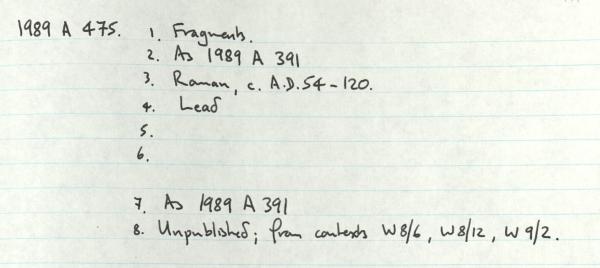 1989 A 475. 1. Fragments.
2. As 1989 A 391
3. Roman, c. A.D. 54-120.
4. Lead
5.
6.
7. As 1989 A 391
8. Unpublished; from contexts W8/6, W8/12, W9/2.